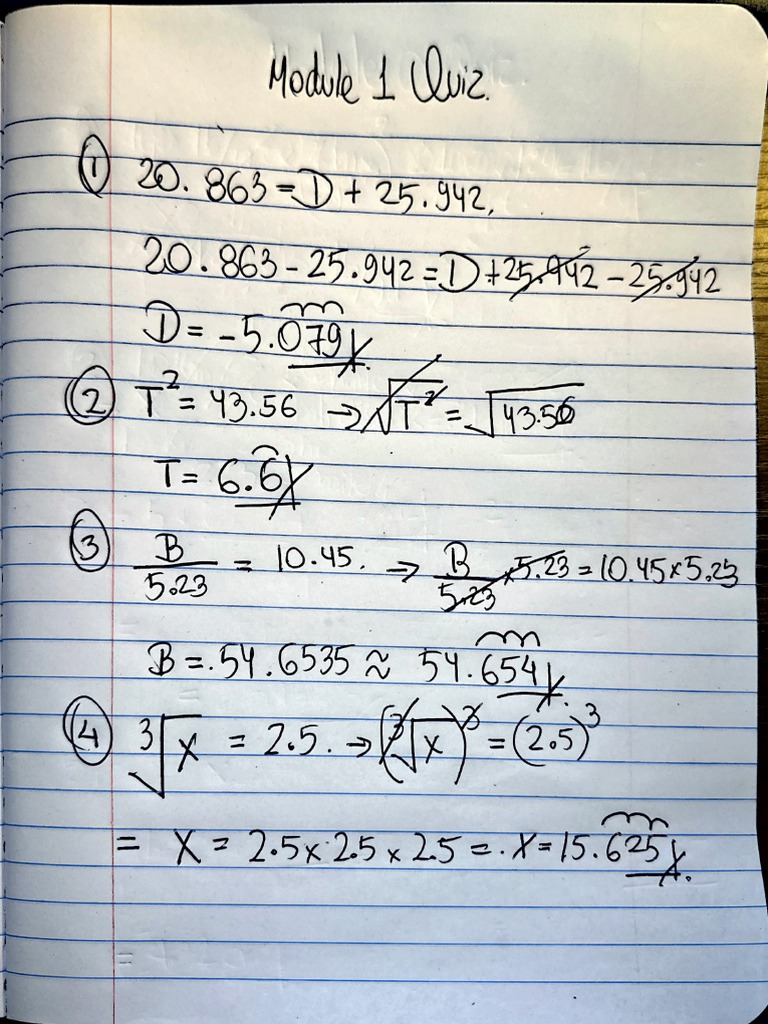 Module 1 Quiz.
① 20.863 = D + 25.942.
20.863 - 25.942 = D + 25.942 - 25.942
D = -5.079
② T² = 43.56 → √T² = √43.56
T = 6.6
③ B/5.23 = 10.45. → B/5.23 × 5.23 = 10.45 × 5.23
B = 54.6535 ≈ 54.654
④ ³√x = 2.5. → (³√x)³ = (2.5)³
= X = 2.5 × 2.5 × 2.5 = X = 15.625